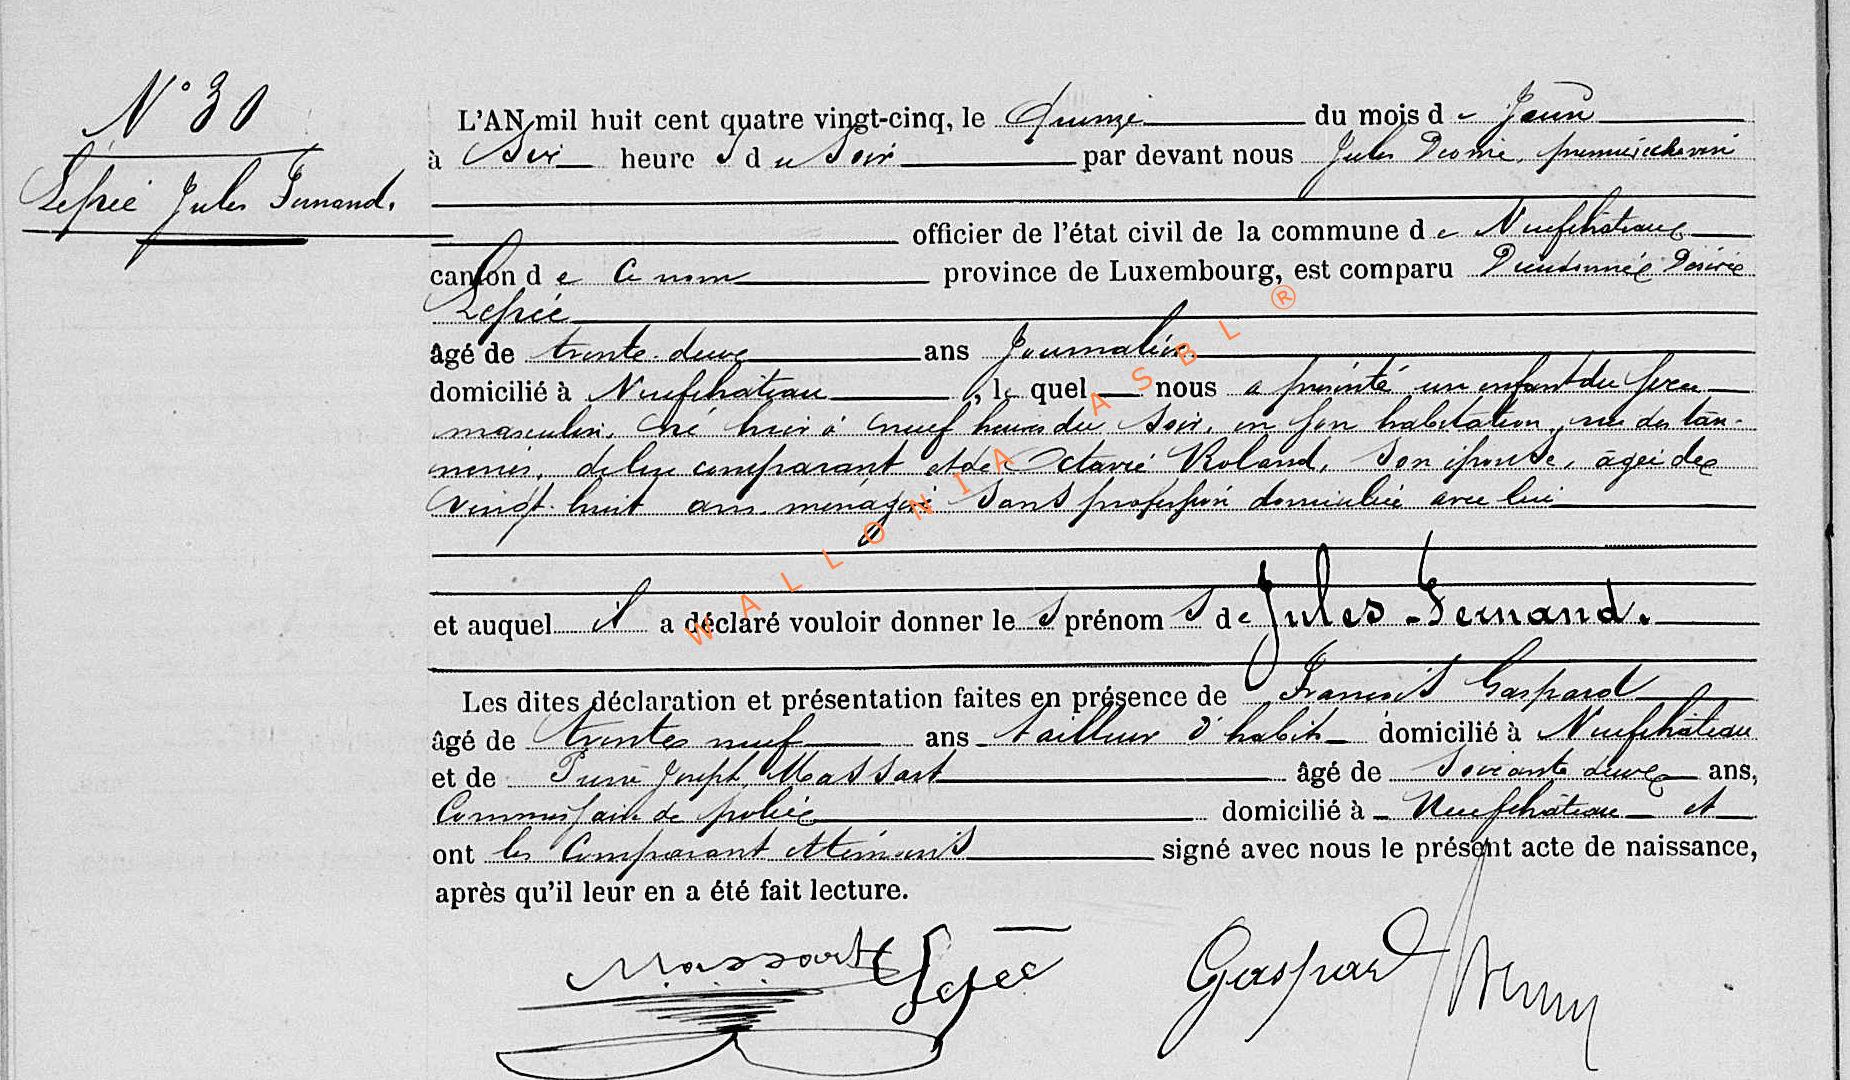 N° 30
Lepée Jules Fernand.
L'AN mil huit cent quatre vingt-cinq, le quinze du mois de Juin
à Six heure s du Soir par devant nous Jules premier échevin
officier de l'état civil de la commune de Neufchâteau
canton de ce nom province de Luxembourg, est comparu Dieudonné Désiré
Lepée
âgé de trente-deux ans Journalier
domicilié à Neufchâteau, le quel nous a présenté un enfant du sexe
masculin, né hier à neuf heures du soir, en son habitation, rue des tan-
neries, de lui comparant et de Octavie Roland, son épouse, âgée de
vingt-huit ans ménagère sans profession domiciliée avec lui
et auquel il a déclaré vouloir donner le s prénom s de Jules-Fernand.
Les dites déclaration et présentation faites en présence de François Gaspard
âgé de trente neuf ans tailleur d'habits domicilié à Neufchâteau
et de Pierre Joseph Massart âgé de soixante deux ans,
Commissaire de police domicilié à Neufchâteau et
ont les Comparant et témoins signé avec nous le présent acte de naissance,
après qu'il leur en a été fait lecture.
Massart Lepée Gaspard
WALLONIA ASBL ®